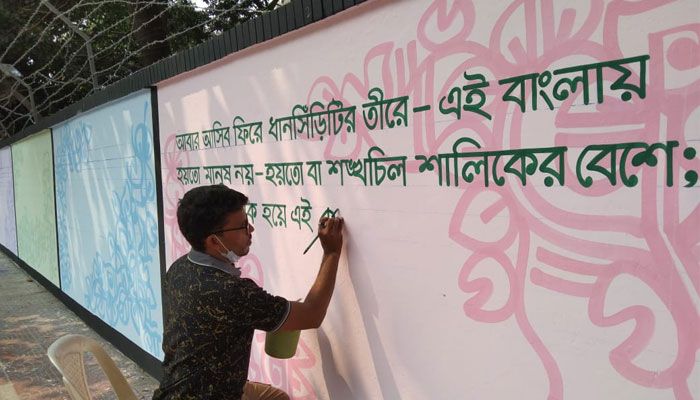 আবার আসিব ফিরে ধানসিঁড়িটির তীরে – এই বাংলায়
হয়তো মানুষ নয় – হয়তো বা শঙ্খচিল শালিকের বেশে;
হয়ে এই